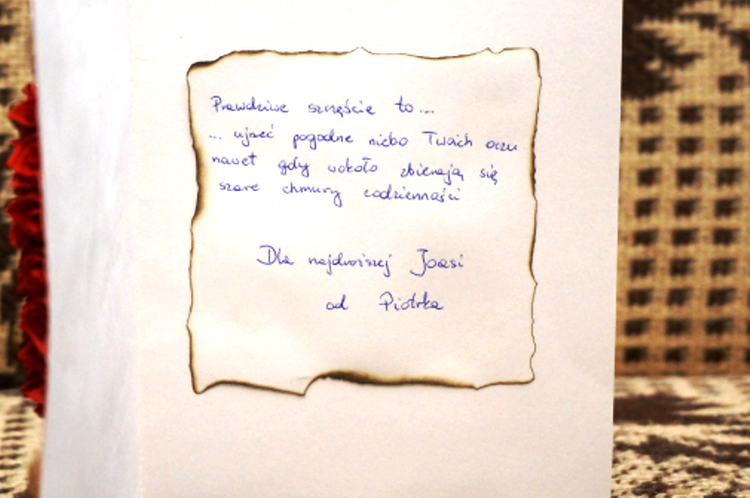 Prawdziwe szczęście to...
... ujrzeć pogodne niebo Twoich oczu
nawet gdy wokoło zbierają się
szare chmury codzienności
Dla najdroższej Joasi
od Piotrka